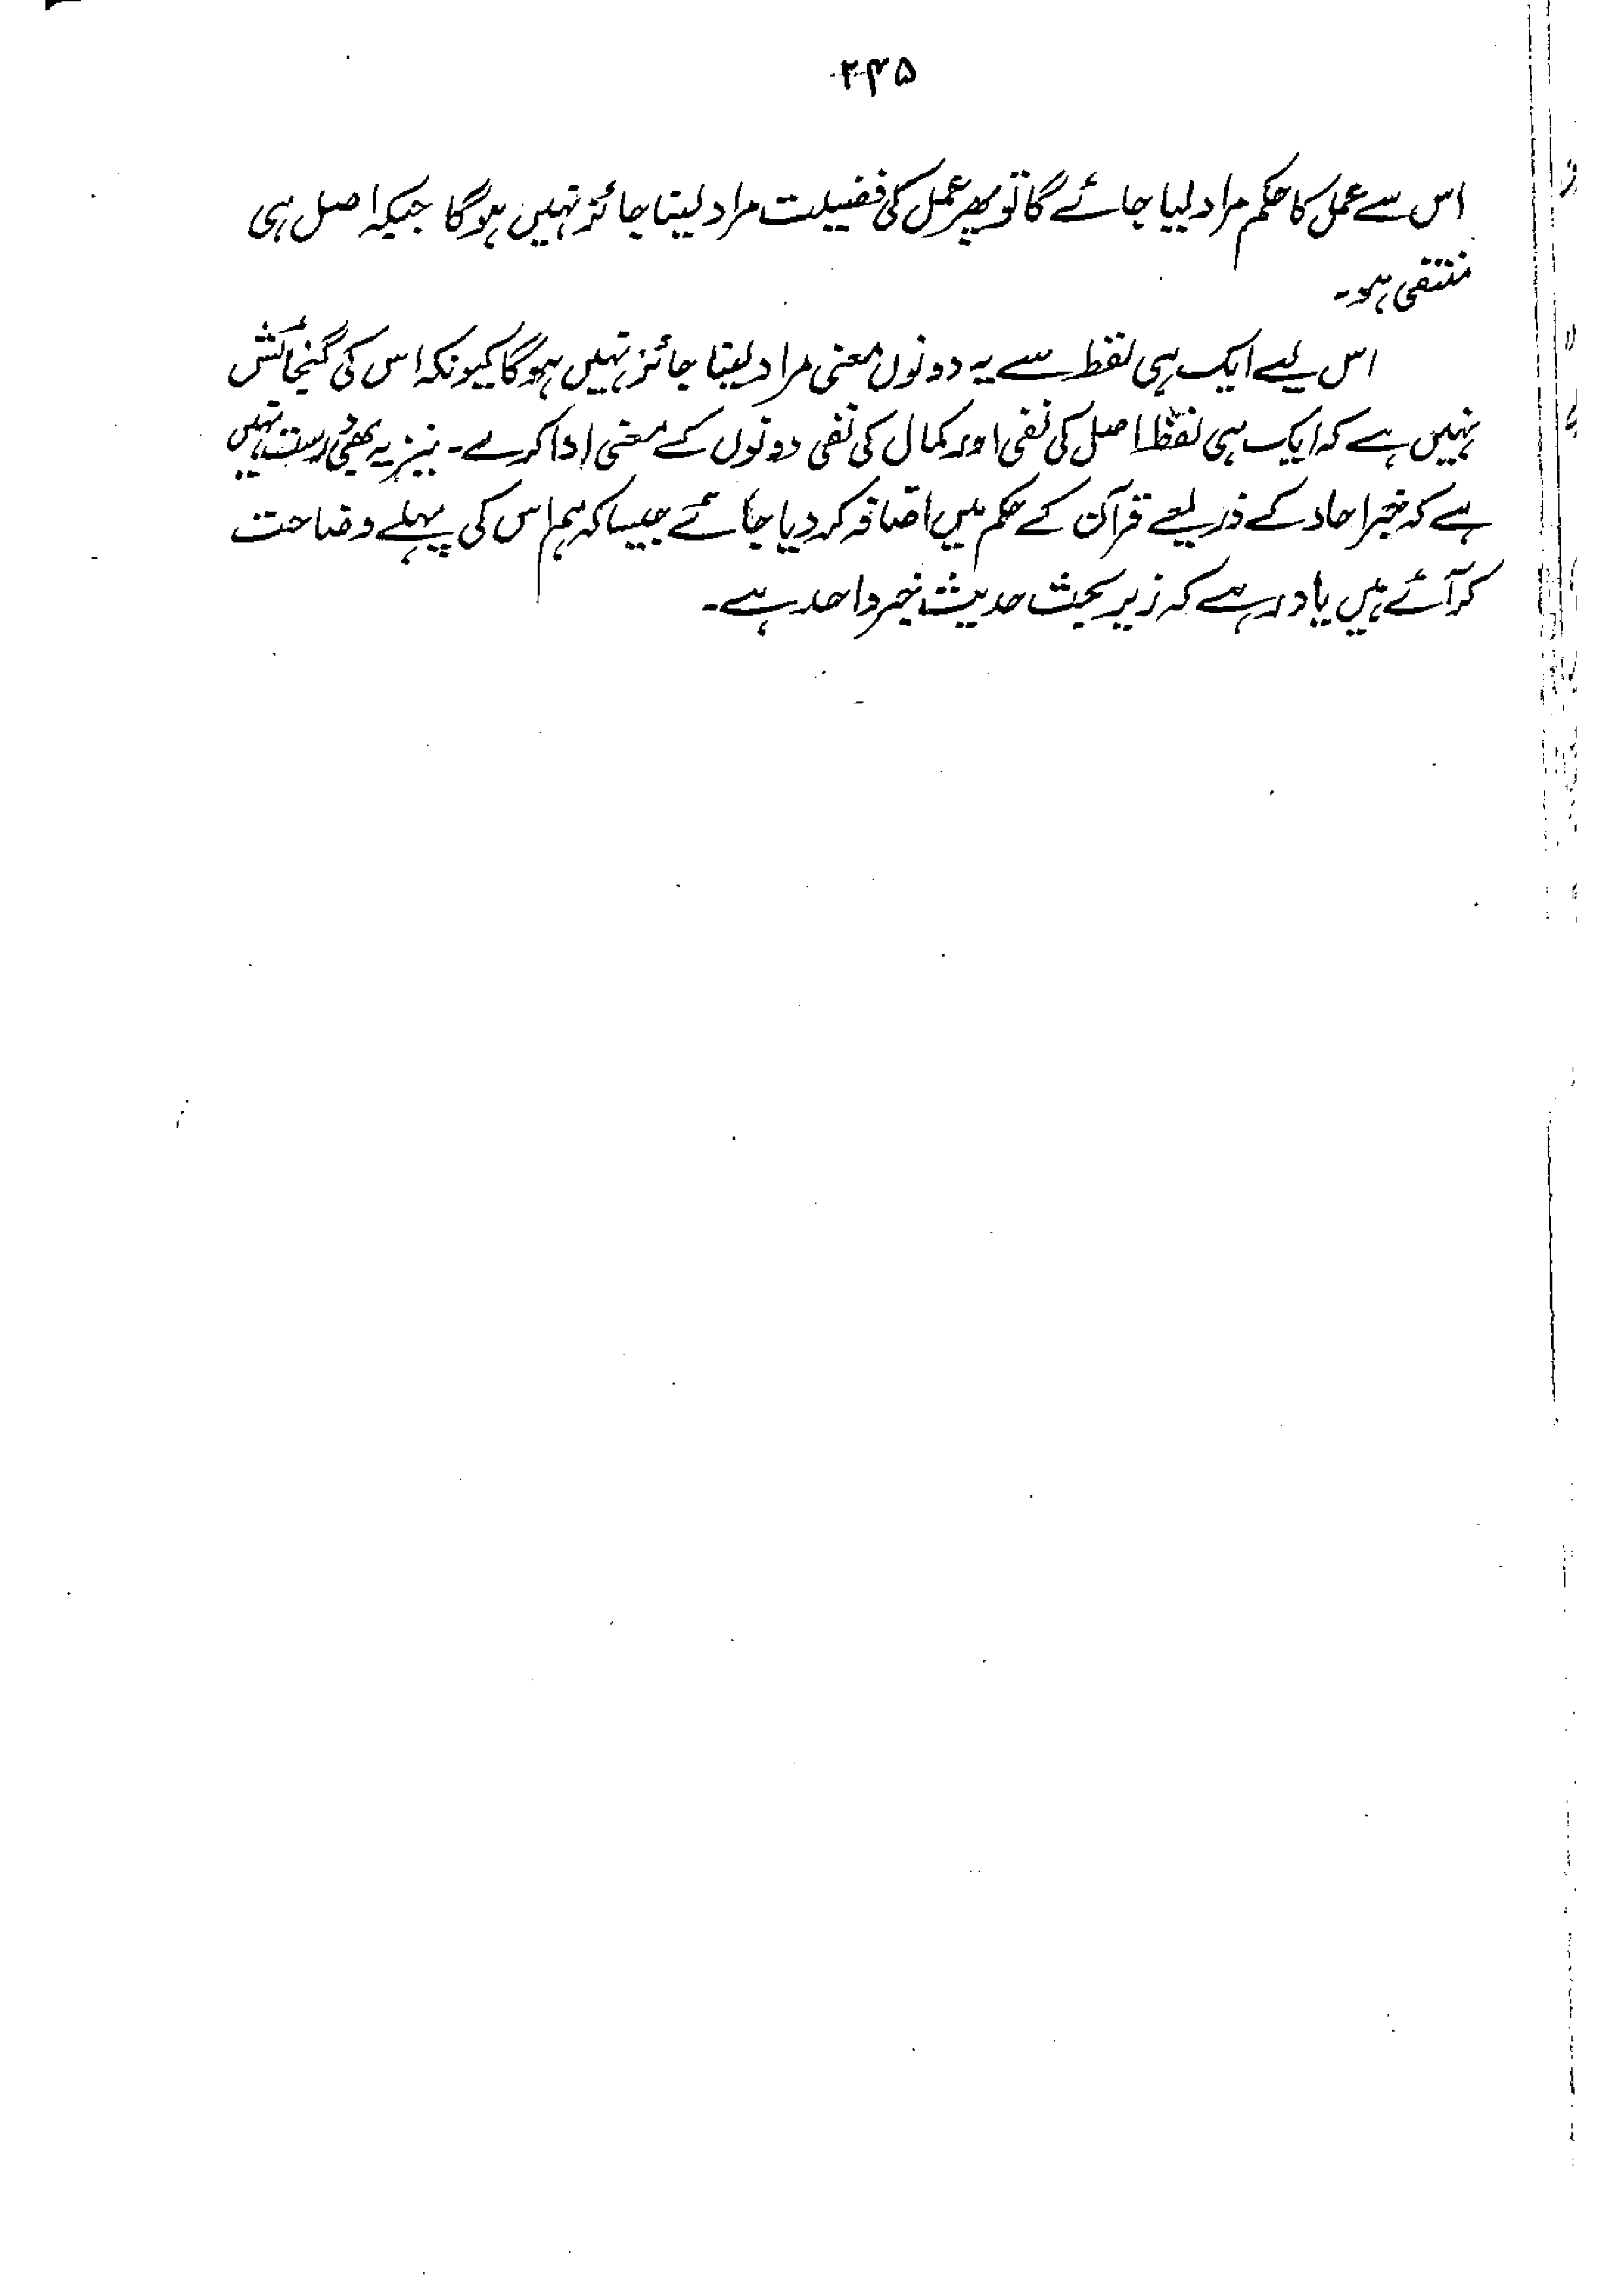 ۲۴۵
اس سے عمل کا حکم مراد لیا جائے گا تو پھر عمل کی فضیلت مراد لینا جائز نہیں ہوگا جبکہ اصل ہی
منتفی ہو۔
اس لیے ایک ہی لفظ سے یہ دونوں معنی مراد لینا جائز نہیں ہوگا کیونکہ اس کی گنجائش
نہیں ہے کہ ایک ہی لفظ اصل کی نفی اور کمال کی نفی دونوں کے معنی ادا کرے۔ نیز یہ بھی درست نہیں
ہے کہ خبر احاد کے ذریعے قرآن کے حکم میں اضافہ کر دیا جائے جیسا کہ ہم اس کی پہلے وضاحت
کر آئے ہیں یاد رہے کہ زیر بحث حدیث خبر واحد ہے۔